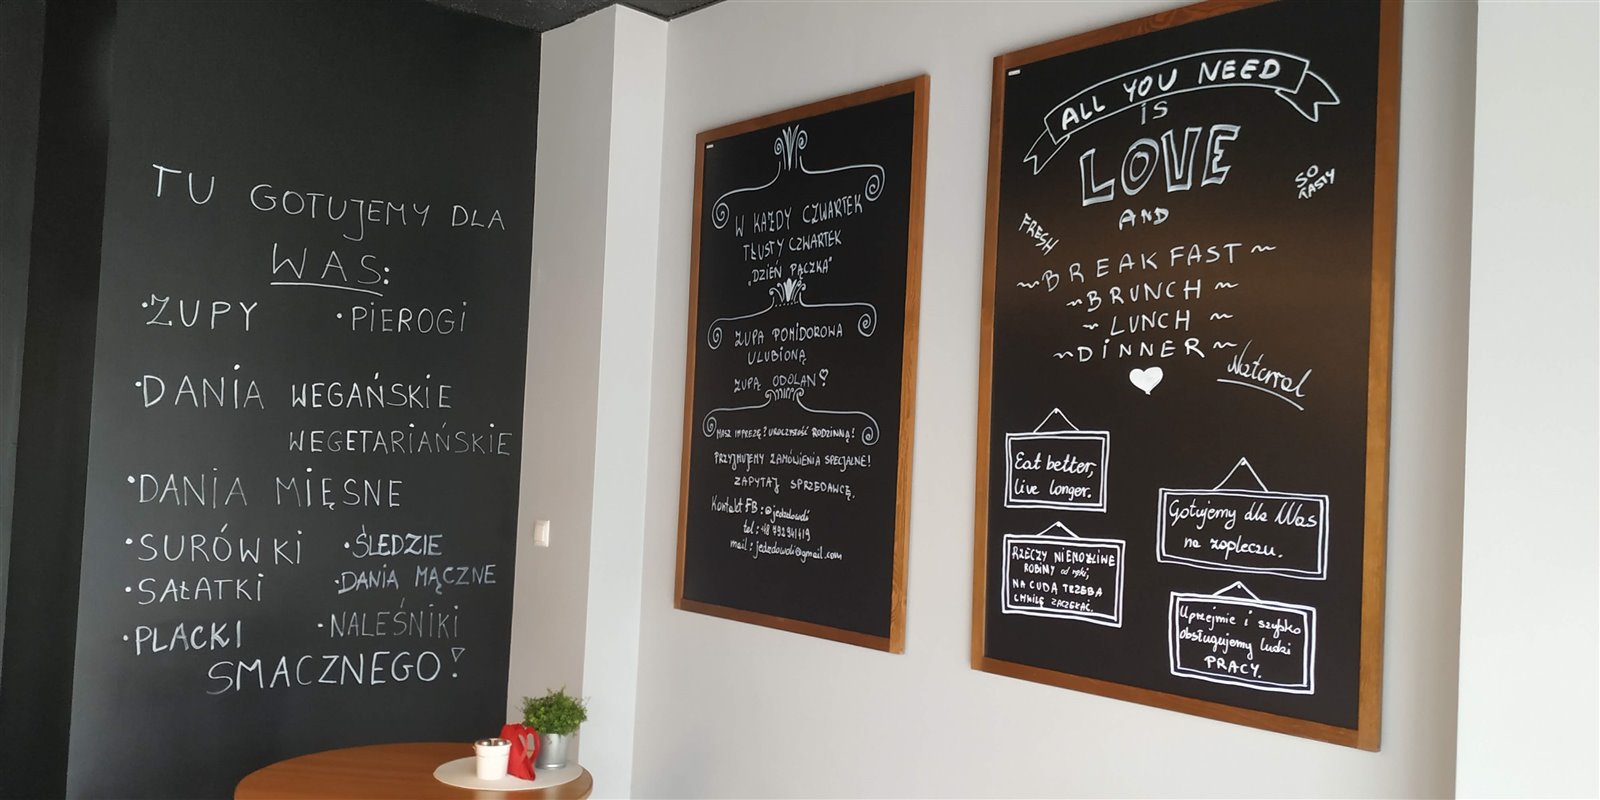 TU GOTUJEMY DLA
WAS:
·ZUPY ·PIEROGI
·DANIA WEGAŃSKIE
WEGETARIAŃSKIE
·DANIA MIĘSNE
·SURÓWKI ·ŚLEDZIE
·SAŁATKI ·DANIA MĄCZNE
·PLACKI ·NALEŚNIKI
SMACZNEGO!
W KAŻDY CZWARTEK
TŁUSTY CZWARTEK
"DZIEŃ PĄCZKA"
ZUPA POMIDOROWA
ULUBIONĄ
ZUPĄ ODOLAN!
MASZ IMPREZĘ? UROCZYSTOŚĆ RODZINNĄ!
PRZYJMUJEMY ZAMÓWIENIA SPECJALNE!
ZAPYTAJ SPRZEDAWCĘ.
Kontakt FB: @jedzdowoli
tel: +48 792 941 419
mail: jedzdowoli@gmail.com
ALL YOU NEED
IS
LOVE
AND
SO
TASTY
FRESH
~BREAKFAST~
~BRUNCH~
~LUNCH~
~DINNER~
Natural
Eat better,
live longer.
Gotujemy dla Was
na zapleczu.
RZECZY NIEMOŻLIWE
ROBIMY od ręki,
NA CUDA TRZEBA
CHWILĘ ZACZEKAĆ.
Uprzejmie i szybko
obsługujemy ludzi
PRACY.